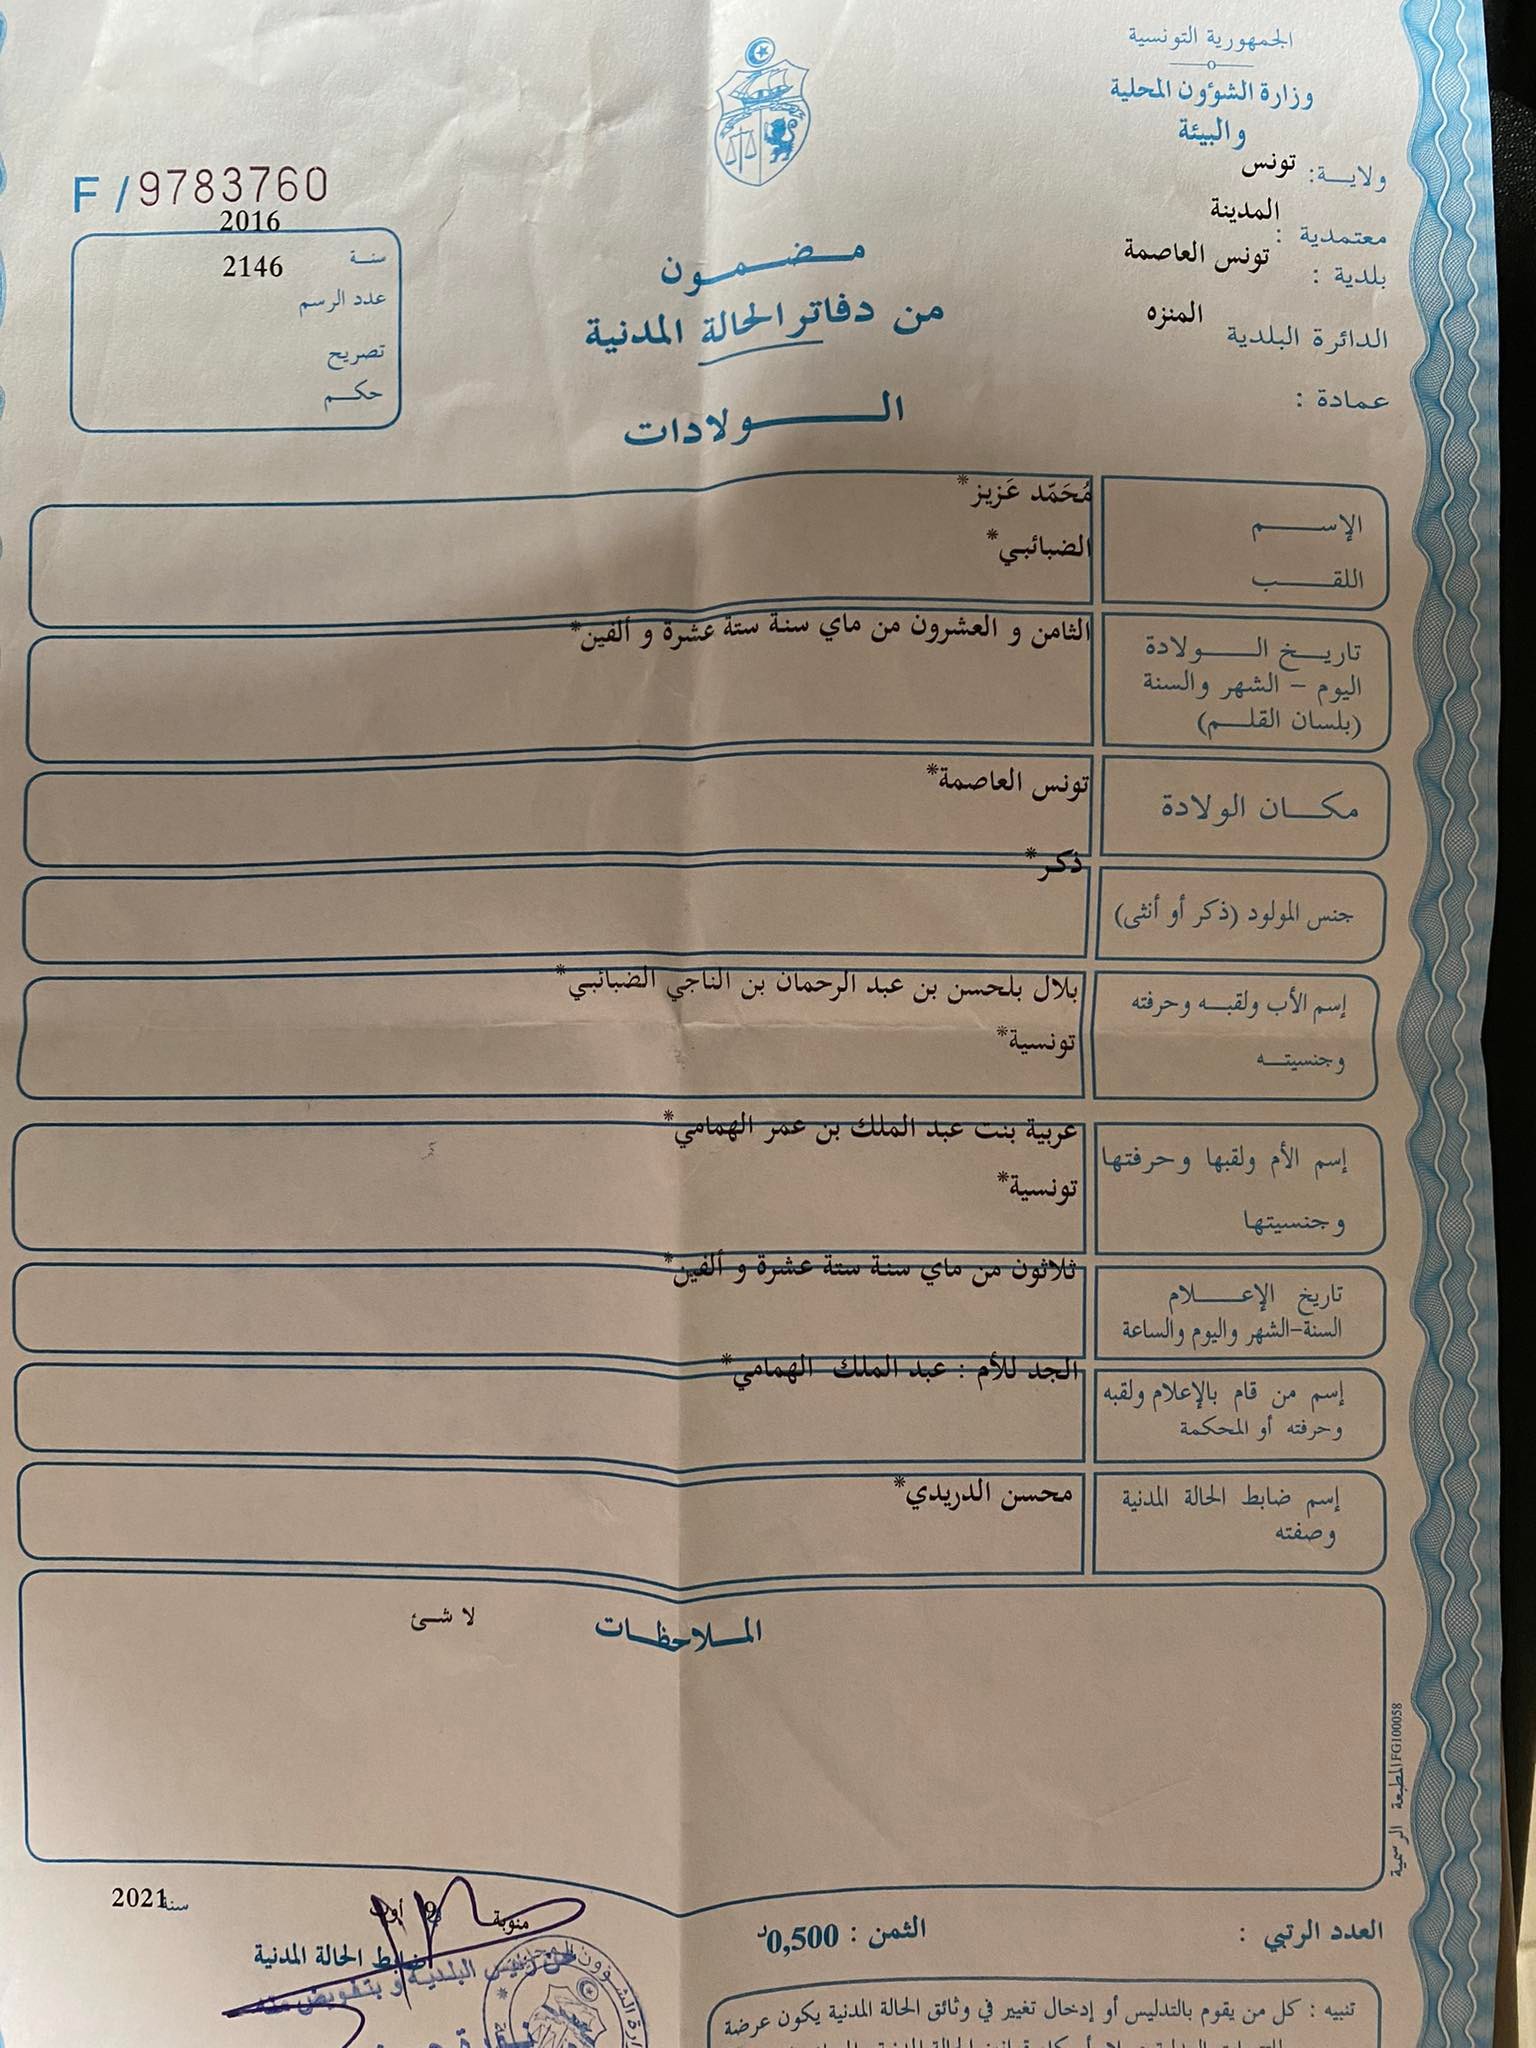 الجمهورية التونسية
وزارة الشؤون المحلية
والبيئة
ولايـة: تونس
معتمدية : المدينة
بلدية : تونس العاصمة
الدائرة البلدية المنزه
عمادة :
F / 9783760
سنة 2016
عدد الرسم 2146
تصريح
حكم
مضمون
من دفاتر الحالة المدنية
الولادات
الإسم مُحَمّد عَزيز*
اللقب الضبائبي*
تاريخ الولادة الثامن و العشرون من ماي سنة ستة عشرة و ألفين*
اليوم - الشهر والسنة
(بلسان القلم)
مكان الولادة تونس العاصمة*
جنس المولود (ذكر أو أنثى) ذكر*
إسم الأب ولقبه وحرفته بلال بلحسن بن عبد الرحمان بن الناجي الضبائبي*
وجنسيته تونسية*
إسم الأم ولقبها وحرفتها عربية بنت عبد الملك بن عمر الهمامي*
وجنسيتها تونسية*
تاريخ الإعلام ثلاثون من ماي سنة ستة عشرة و ألفين*
السنة-الشهر واليوم والساعة
إسم من قام بالإعلام ولقبه الجد للأم : عبد الملك الهمامي*
وحرفته أو المحكمة
إسم ضابط الحالة المدنية محسن الدريدي*
وصفته
الملاحظات لا شئ
المطبعة الرسمية FG100058
العدد الرتبي :
الثمن : 0,500د
منوبة 9 أوت سنة 2021
ضابط الحالة المدنية
عن رئيس البلدية و بتفويض منه
تنبيه : كل من يقوم بالتدليس أو إدخال تغيير في وثائق الحالة المدنية يكون عرضة